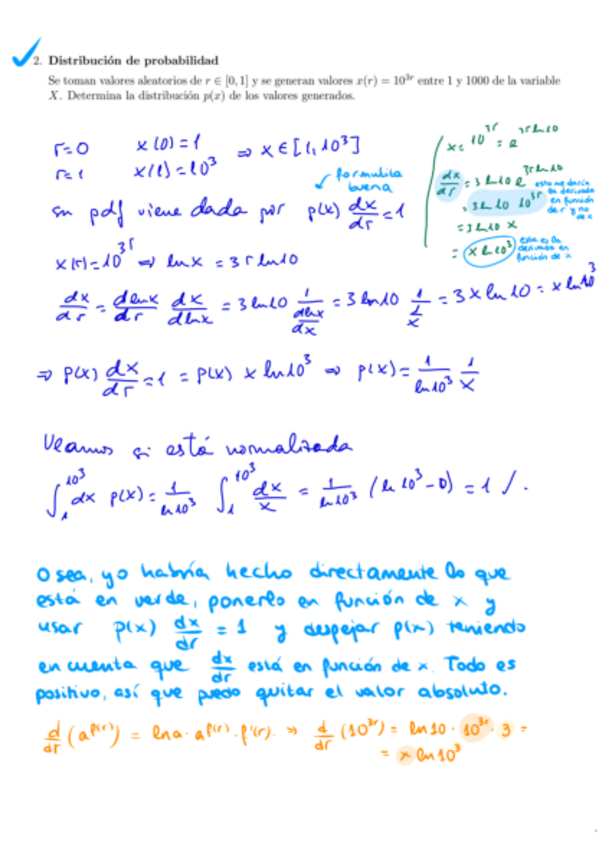 2. Distribución de probabilidad
Se toman valores aleatorios de r ∈ [0, 1] y se generan valores x(r) = 10^{3r} entre 1 y 1000 de la variable
X. Determina la distribución p(x) de los valores generados.
r=0 x(0)=1
r=1 x(1)=10^3 ⇒ x∈[1,10^3]
formulita
buena
su pdf viene dada por p(x) dx/dr = 1
x = 10^{3r} = e^{3r ln 10}
dx/dr = 3 ln 10 e^{3r ln 10}
= 3 ln 10 10^{3r}
esto me daría
la derivada
en función
de r y no
de x
= 3 ln 10 x
= x ln 10^3
esta es la
derivada en
función de x
x(r)=10^{3r} ⇒ ln x = 3r ln 10
dx/dr = dlnx/dr dx/dlnx = 3 ln 10 1/(dlnx/dx) = 3 ln 10 1/(1/x) = 3 x ln 10 = x ln 10^3
⇒ p(x) dx/dr = 1 = p(x) x ln 10^3 ⇒ p(x) = 1/ln 10^3 1/x
Veamos si está normalizada
∫_1^{10^3} dx p(x) = 1/ln 10^3 ∫_1^{10^3} dx/x = 1/ln 10^3 (ln 10^3 - 0) = 1 /.
O sea, yo habría hecho directamente lo que
está en verde, ponerlo en función de x y
usar p(x) dx/dr = 1 y despejar p(x) teniendo
en cuenta que dx/dr está en función de x. Todo es
positivo, así que puedo quitar el valor absoluto.
d/dr (a^{f(r)}) = ln a · a^{f(r)} · f'(r). ⇒ d/dr (10^{3r}) = ln 10 · 10^{3r} · 3 =
= x ln 10^3